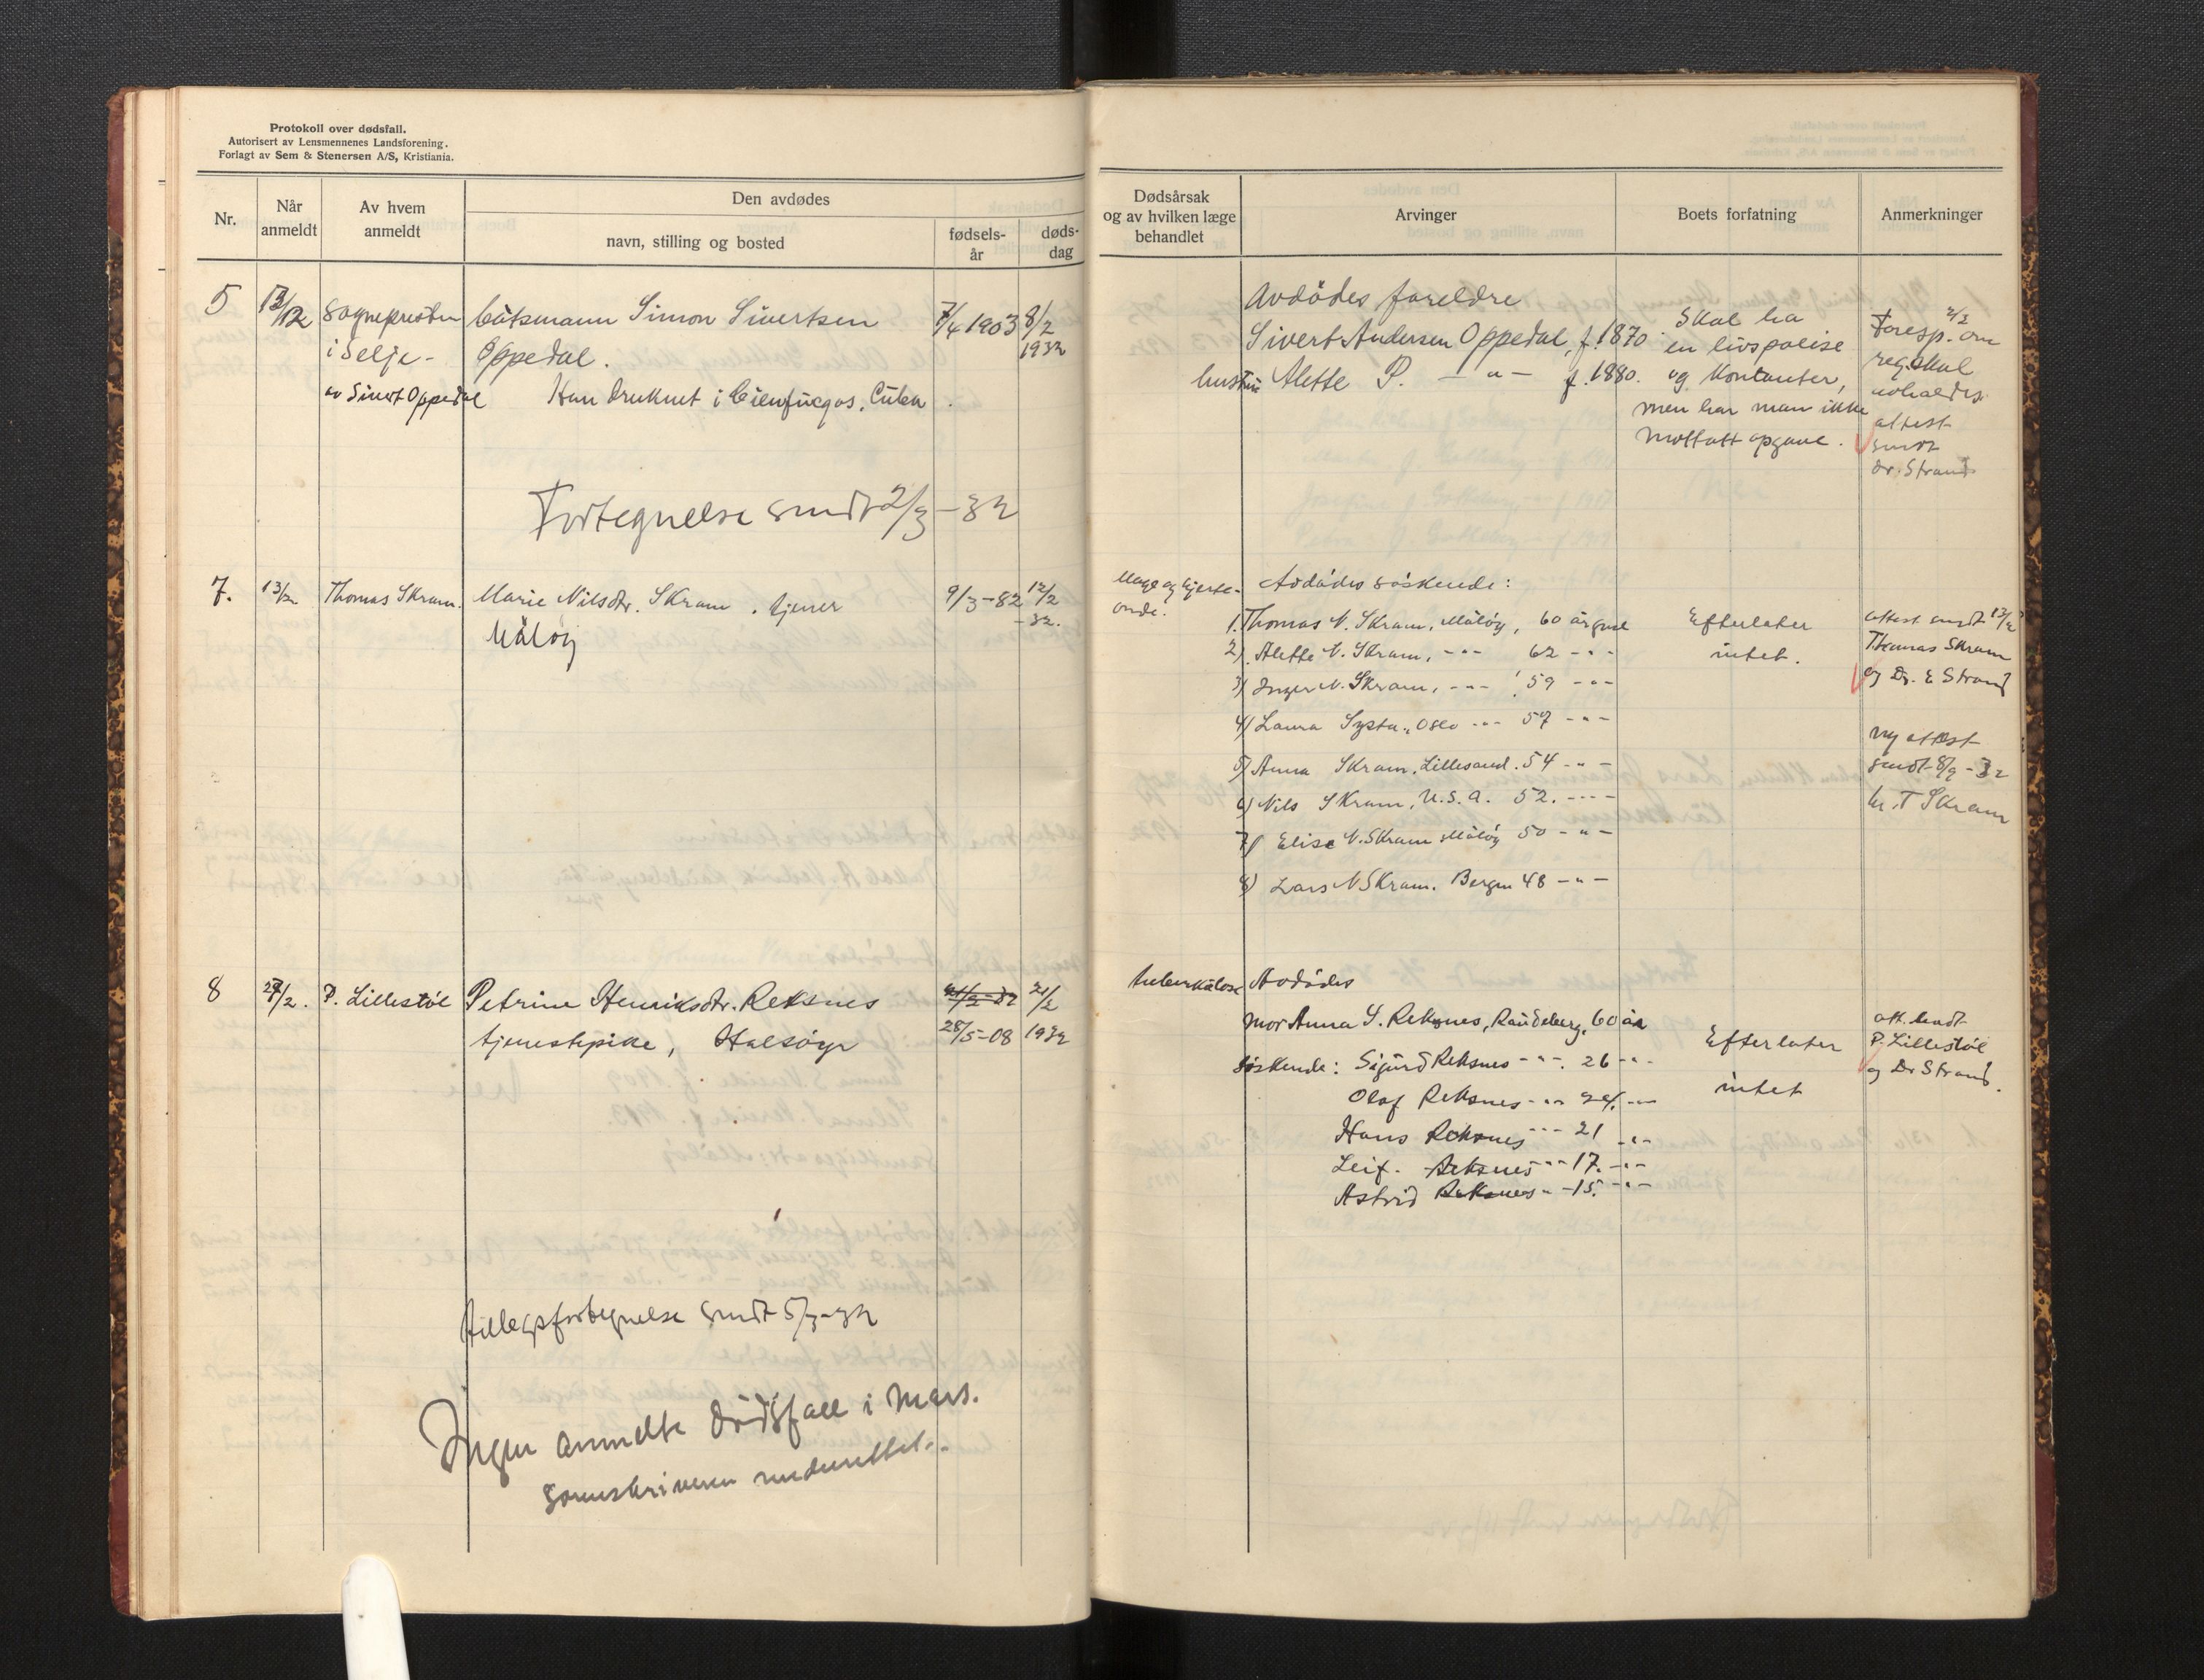 Protokoll over dødsfall.
Autorisert av Lensmennenes Landsforening.
Forlagt av Sem & Stenersen A/S, Kristiania.
Nr.
Når anmeldt
Av hvem anmeldt
Den avdødes
navn, stilling og bosted
fødsels-år
døds-dag
Dødsårsak og av hvilken læge behandlet
Arvinger
Boets forfatning
Anmerkninger
5
sognepresten
i Selje -
av Sivert Oppedal
båtsmann Simon Sivertsen
Oppedal.
Han druknet i Cienfuegos, Cuba.
7/4 1903
8/2
1932
Avdödes foreldre
Sivert Andersen Oppedal, f. 1870
hustru Alette P. — " — f. 1880.
Skal ha
en livspolise
og kontanter,
men har man ikke
mottatt opgave.
Foresp. om
reg. skal
avholdes.
attest
sendt
dr. Strand
Fortegnelse sendt 2/3 - 32
7.
13/2
Thomas Skram.
Marie Nilsdtr. Skram. tjener
Måløy
9/3 - 82
12/2
- 32.
Mage og hjerte-
onde.
Avdödes söskende:
1. Thomas N. Skram, Måløy, 60 år gml
2) Alette N. Skram, - " - 62 - " -
3) Inger N. Skram, - " - 59 - " -
4) Laura, Oslo - " - 57 - " -
5) Anna Skram, Lillesand. 54 - " -
6) Nils Skram, U.S.A. 52. - " -
7) Elise N. Skram Måløy 50 - " -
8) Lars N Skram. Bergen 48 - " -
Efterlater
intet.
attest sendt 13/2
Thomas Skram
og Dr. E Strand
ny attest
sendt 8/9 - 32
hr. T Skram
8
P. Lillestöl
Petrine Henriksdtr. Reksnes
tjenestepike, Halsöyr
28/5 - 08
21/2
1932
tuberkulose
Avdödes
mor Anna S. Reksnes, Raudeberg, 60 år
söskende: Sigurd Reksnes - " - 26 - " -
Olaf Reksnes - " - 24. - " -
Hans Reksnes - " - 21 - " -
Leif. Reksnes - " - 17. - " -
Astrid Reksnes - " - 15. - " -
Efterlater
intet
att. sendt
P. Lillestöl
og Dr Strand.
Tillegsfortegnelse sendt 5/3 - 32
Ingen anmeldte dödsfall i mars.
Sorenskriveren underrettet.